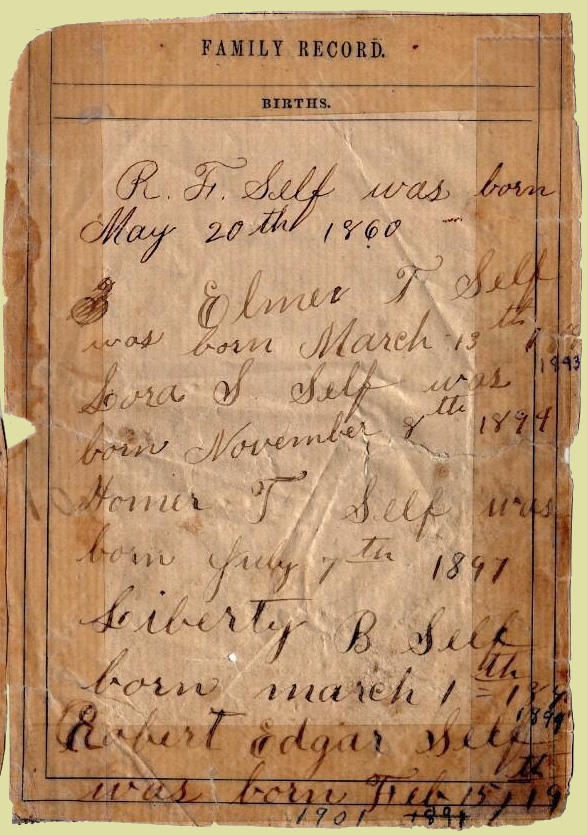 FAMILY RECORD.
BIRTHS.
R. F. Self was born
May 20th 1860
Elmer T Self
was born March 13th
1893
Lora S. Self was
born November 8th 1894
Homer T Self was
born July 7th 1897
Liberty B Self
born march 1th 189
1899
Robert Edgar Self
was born Feb 15th 19
1901 1891